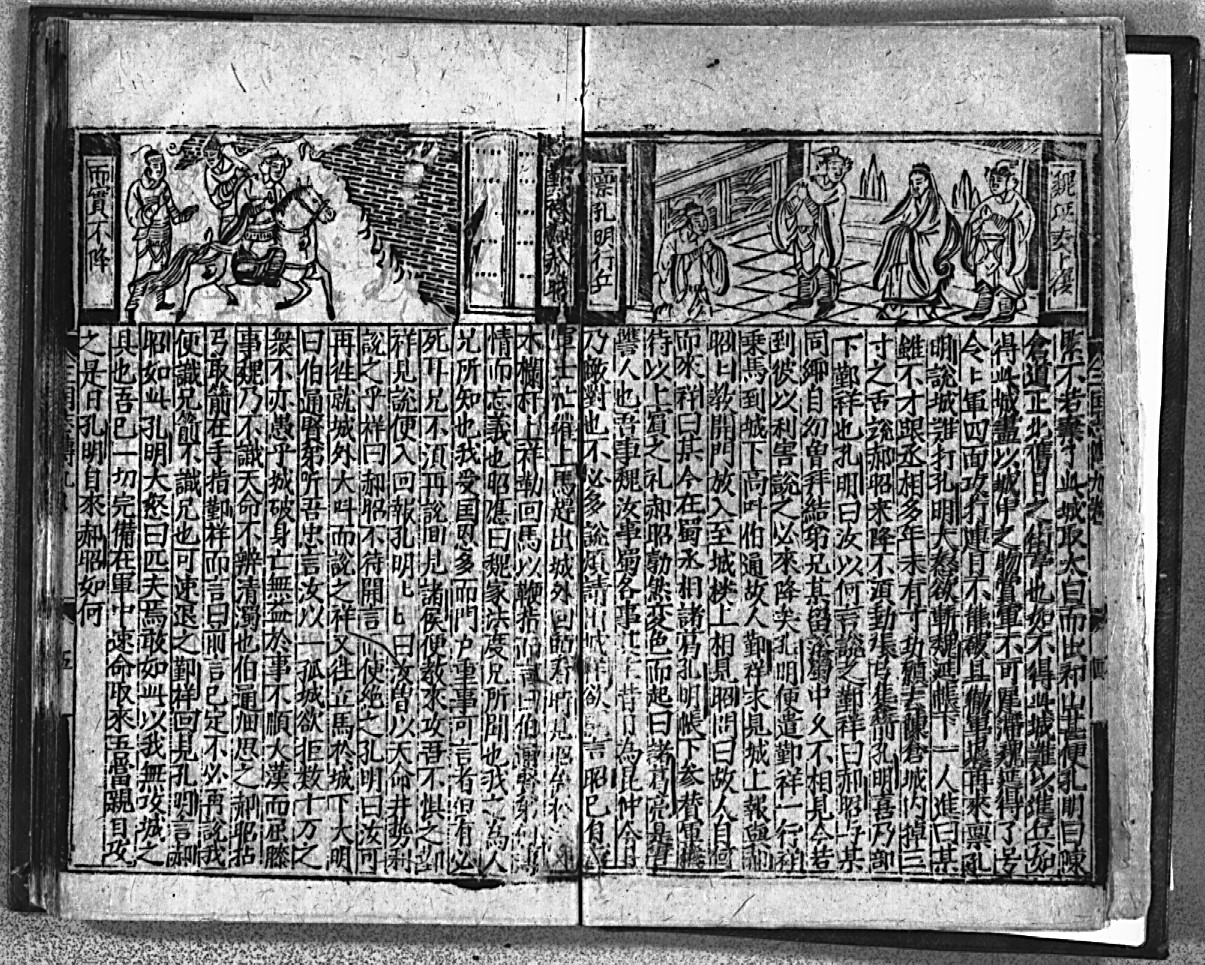 魏延去上復
稟孔明行兵
累不若棄了此城取太白而出祁山甚便孔明曰陳
倉道正北舊日之街亭也如不得此城難以進兵如
得此城盡以城中之物賞軍不可遲滯魏延得了号
令上軍四面攻打連日不能破且徹軍馬再來稟孔
明說城難打孔明大怒欲斬魏延帳下一人進曰某
雖不才跟丞相多年未有寸功願去陳倉城內掉三
寸之舌說郝昭來降不須動張弓隻箭孔明喜乃部
下鄞祥也孔明曰汝以何言說之鄞祥曰郝昭与某
同鄉自幼曾拜結弟兄某留落蜀中久不相見今若
到彼以利害說之必來降矣孔明便遣鄞祥一行祥
乘馬到城下高叫伯通故人鄞祥求見城上報與郝
昭曰教開門放入至城楼上相見昭問曰故人自何
而來祥曰某今在蜀丞相諸葛孔明帳下参替軍機
待以上賓之礼郝昭勃然変色而起曰諸葛亮是我
讐人也吾事魏汝事蜀各事其主昔日為昆仲今日
乃敵對也不必多說須請出城祥欲言昭已自
軍士亡催上馬趕出城外
木欄杆上祥勒回馬以鞭指而謂曰伯通賢弟何
情而忘義也昭應曰魏家法度兄所聞也我之為人
兄所知也我受国恩多而門户重事可言者但有必
死耳兄不須再說回見諸侯便教來攻吾不惧之鄞
祥見說便入回報孔明上曰汝曾以天命井勢利
說之乎祥曰郝昭不待開言而便絕之孔明曰汝可
再徃就城外大叫而說之祥又徃立馬於城下大明
曰伯通賢弟听吾忠言汝以一孤城欲拒数十万之
衆不亦愚乎城破身亡無益於事不順大漢而屈膝
事魏乃不識天命不辨清濁也伯通细思之郝昭拈
弓取箭在手指鄞祥而言曰前言已定不必再說我
便識兄箭不識兄也可速退之鄞祥回見孔明言郝
昭如此孔明大怒曰匹夫焉敢如此以我無攻城之
具也吾已一切完備在軍中速命取來吾當親自攻
之是日孔明自來郝昭如何
而實不降
五